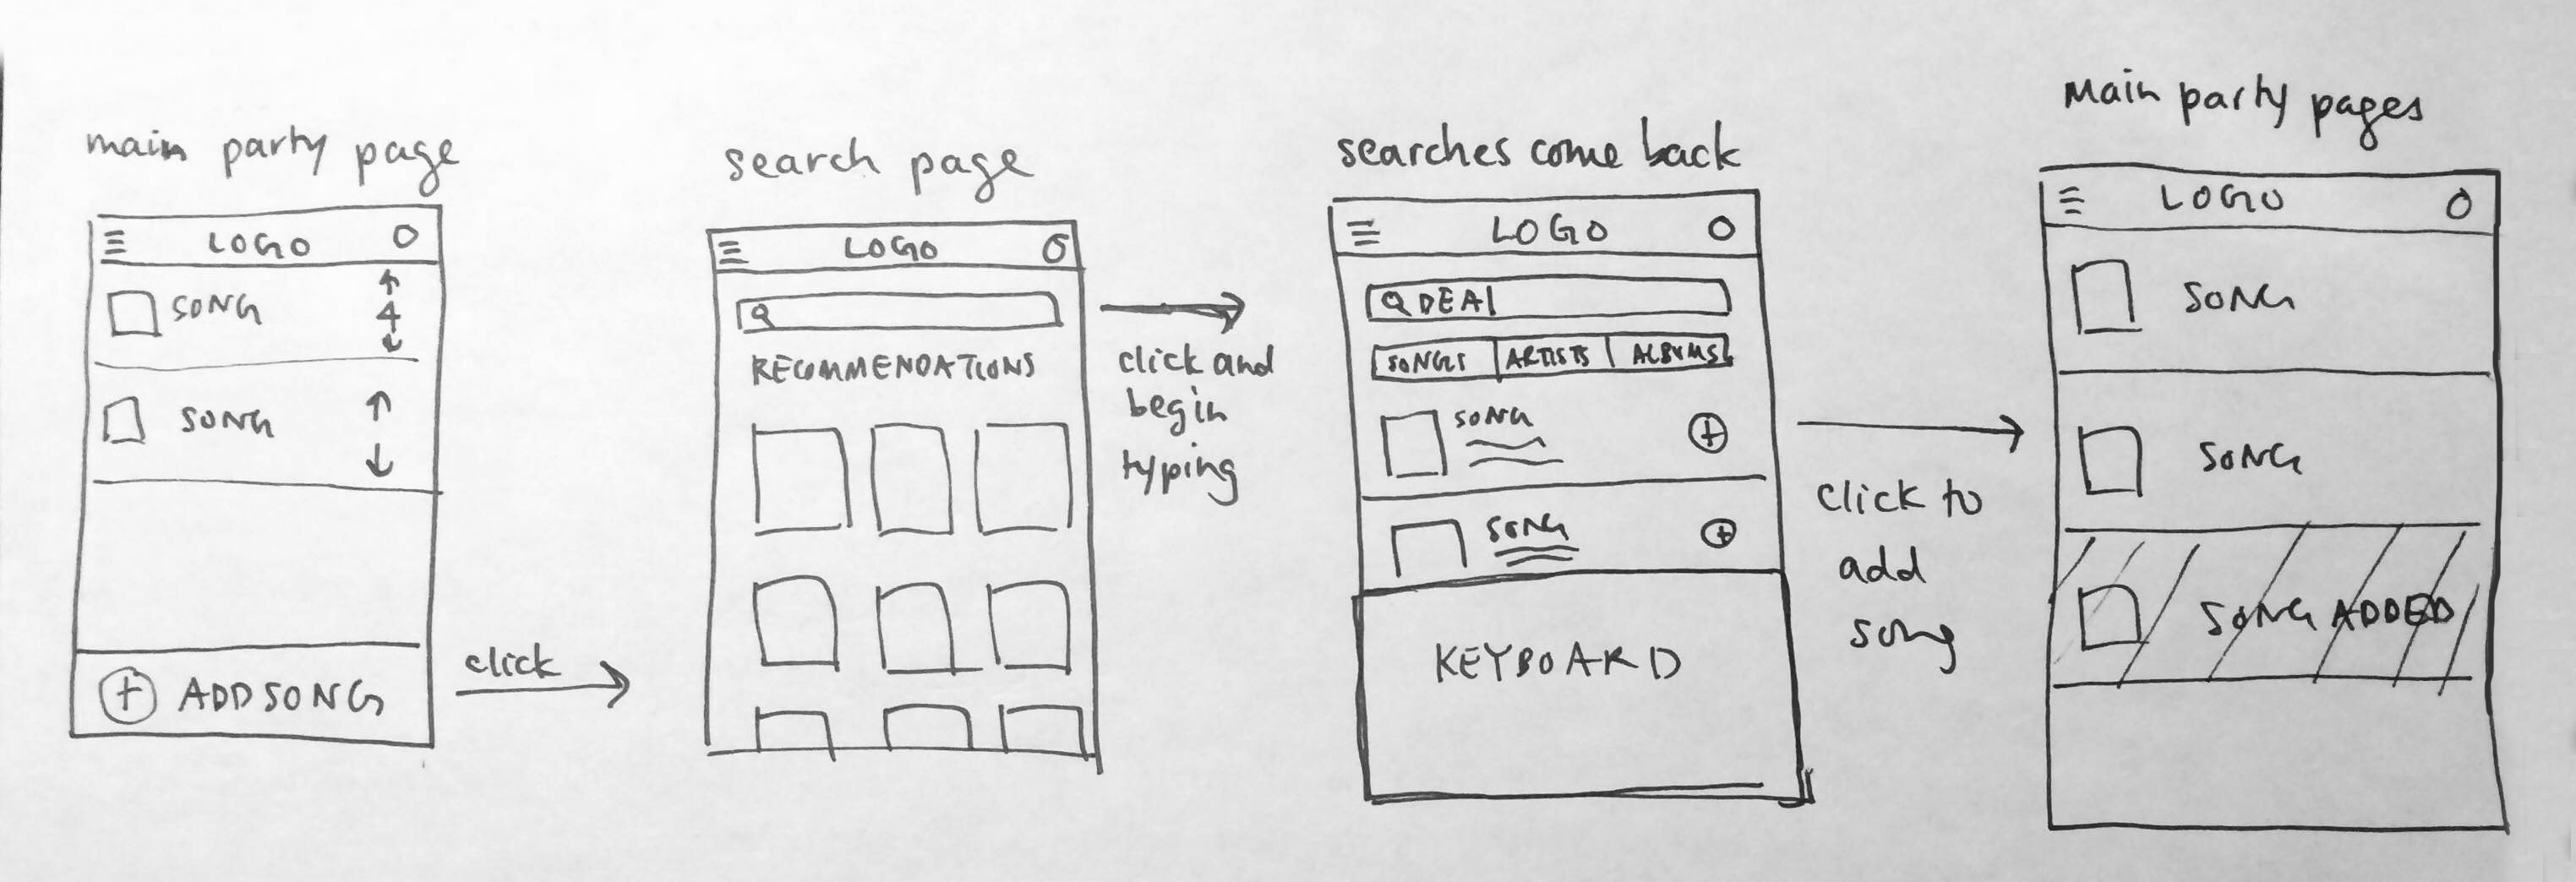 main party page
LOGO
SONG
4
SONG
ADD SONG
click
search page
LOGO
RECOMMENDATIONS
click and
begin
typing
searches come back
LOGO
DEA
SONGS ARTISTS ALBUMS
SONG
SONG
KEYBOARD
click to
add
song
Main party pages
LOGO
SONG
SONG
SONG ADDED